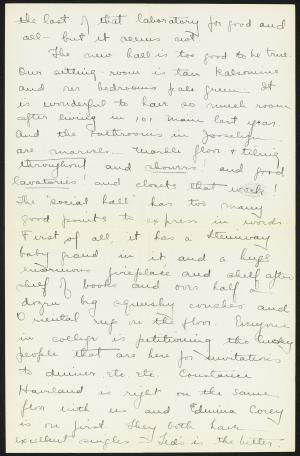 the last of that laboratory for good and
all – but it seems not.
The new hall is too good to be true.
Our sitting-room is tan Kalsomine
and our bedrooms pale green. It
is wonderful to have so much room
after living in 101 Main last year.
And the bathrooms in Josselyn
are marvels – marble floor & tiling
throughout and showers! and good
lavatories! and closets that work!
The "social hall" has too many
good points to express in words.
First of all, it has a Steinway
baby grand in it and a huge
enormous fireplace and shelf after
shelf of books and over half a
dozen big squushy couches and
Oriental rugs on the floor. Everyone
in college is petitioning the lucky
people that are here for invitations
to dinner, etc. etc. Constance
Haviland is right on the same
floor with us and Edwina Corey
is on first. They both have
excellent singles – Ted's is the better –